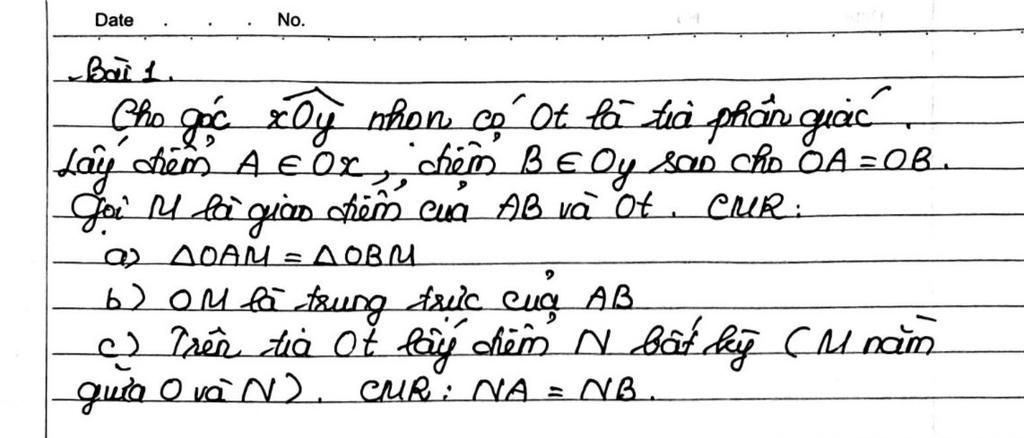 Date . . . No.
Bài 1.
Cho góc xOy nhọn có Ot là tia phân giác.
Lấy điểm A ∈ Ox, điểm B ∈ Oy sao cho OA = OB.
Gọi M là giao điểm của AB và Ot. CMR:
a) ΔOAM = ΔOBM
b) OM là trung trực của AB
c) Trên tia Ot lấy điểm N bất kỳ (M nằm
giữa O và N). CMR: NA = NB.